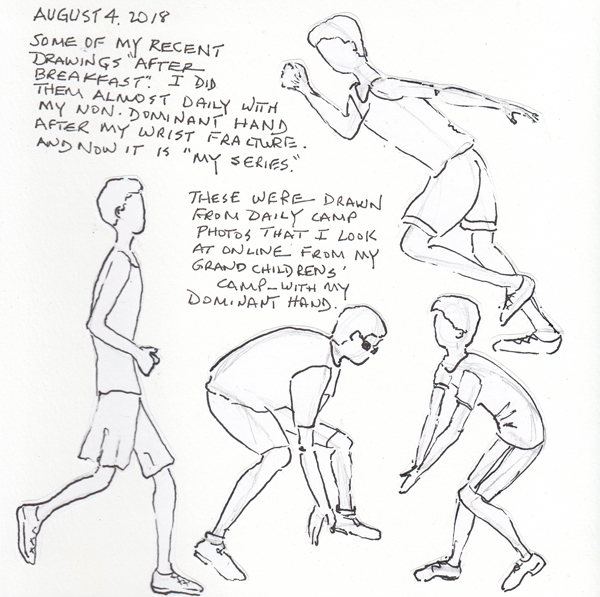 AUGUST 4, 2018
SOME OF MY RECENT
DRAWINGS "AFTER
BREAKFAST". I DID
THEM ALMOST DAILY WITH
MY NON-DOMINANT HAND
AFTER MY WRIST FRACTURE.
AND NOW IT IS "MY SERIES."
THESE WERE DRAWN
FROM DAILY CAMP
PHOTOS THAT I LOOK
AT ONLINE FROM MY
GRANDCHILDRENS'
CAMP-WITH MY
DOMINANT HAND.